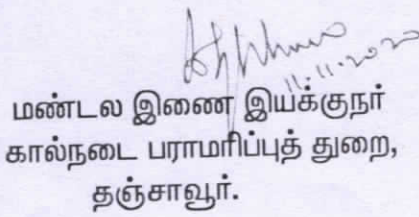 11.11.2020
மண்டல இணை இயக்குநர்
கால்நடை பராமரிப்புத் துறை,
தஞ்சாவூர்.